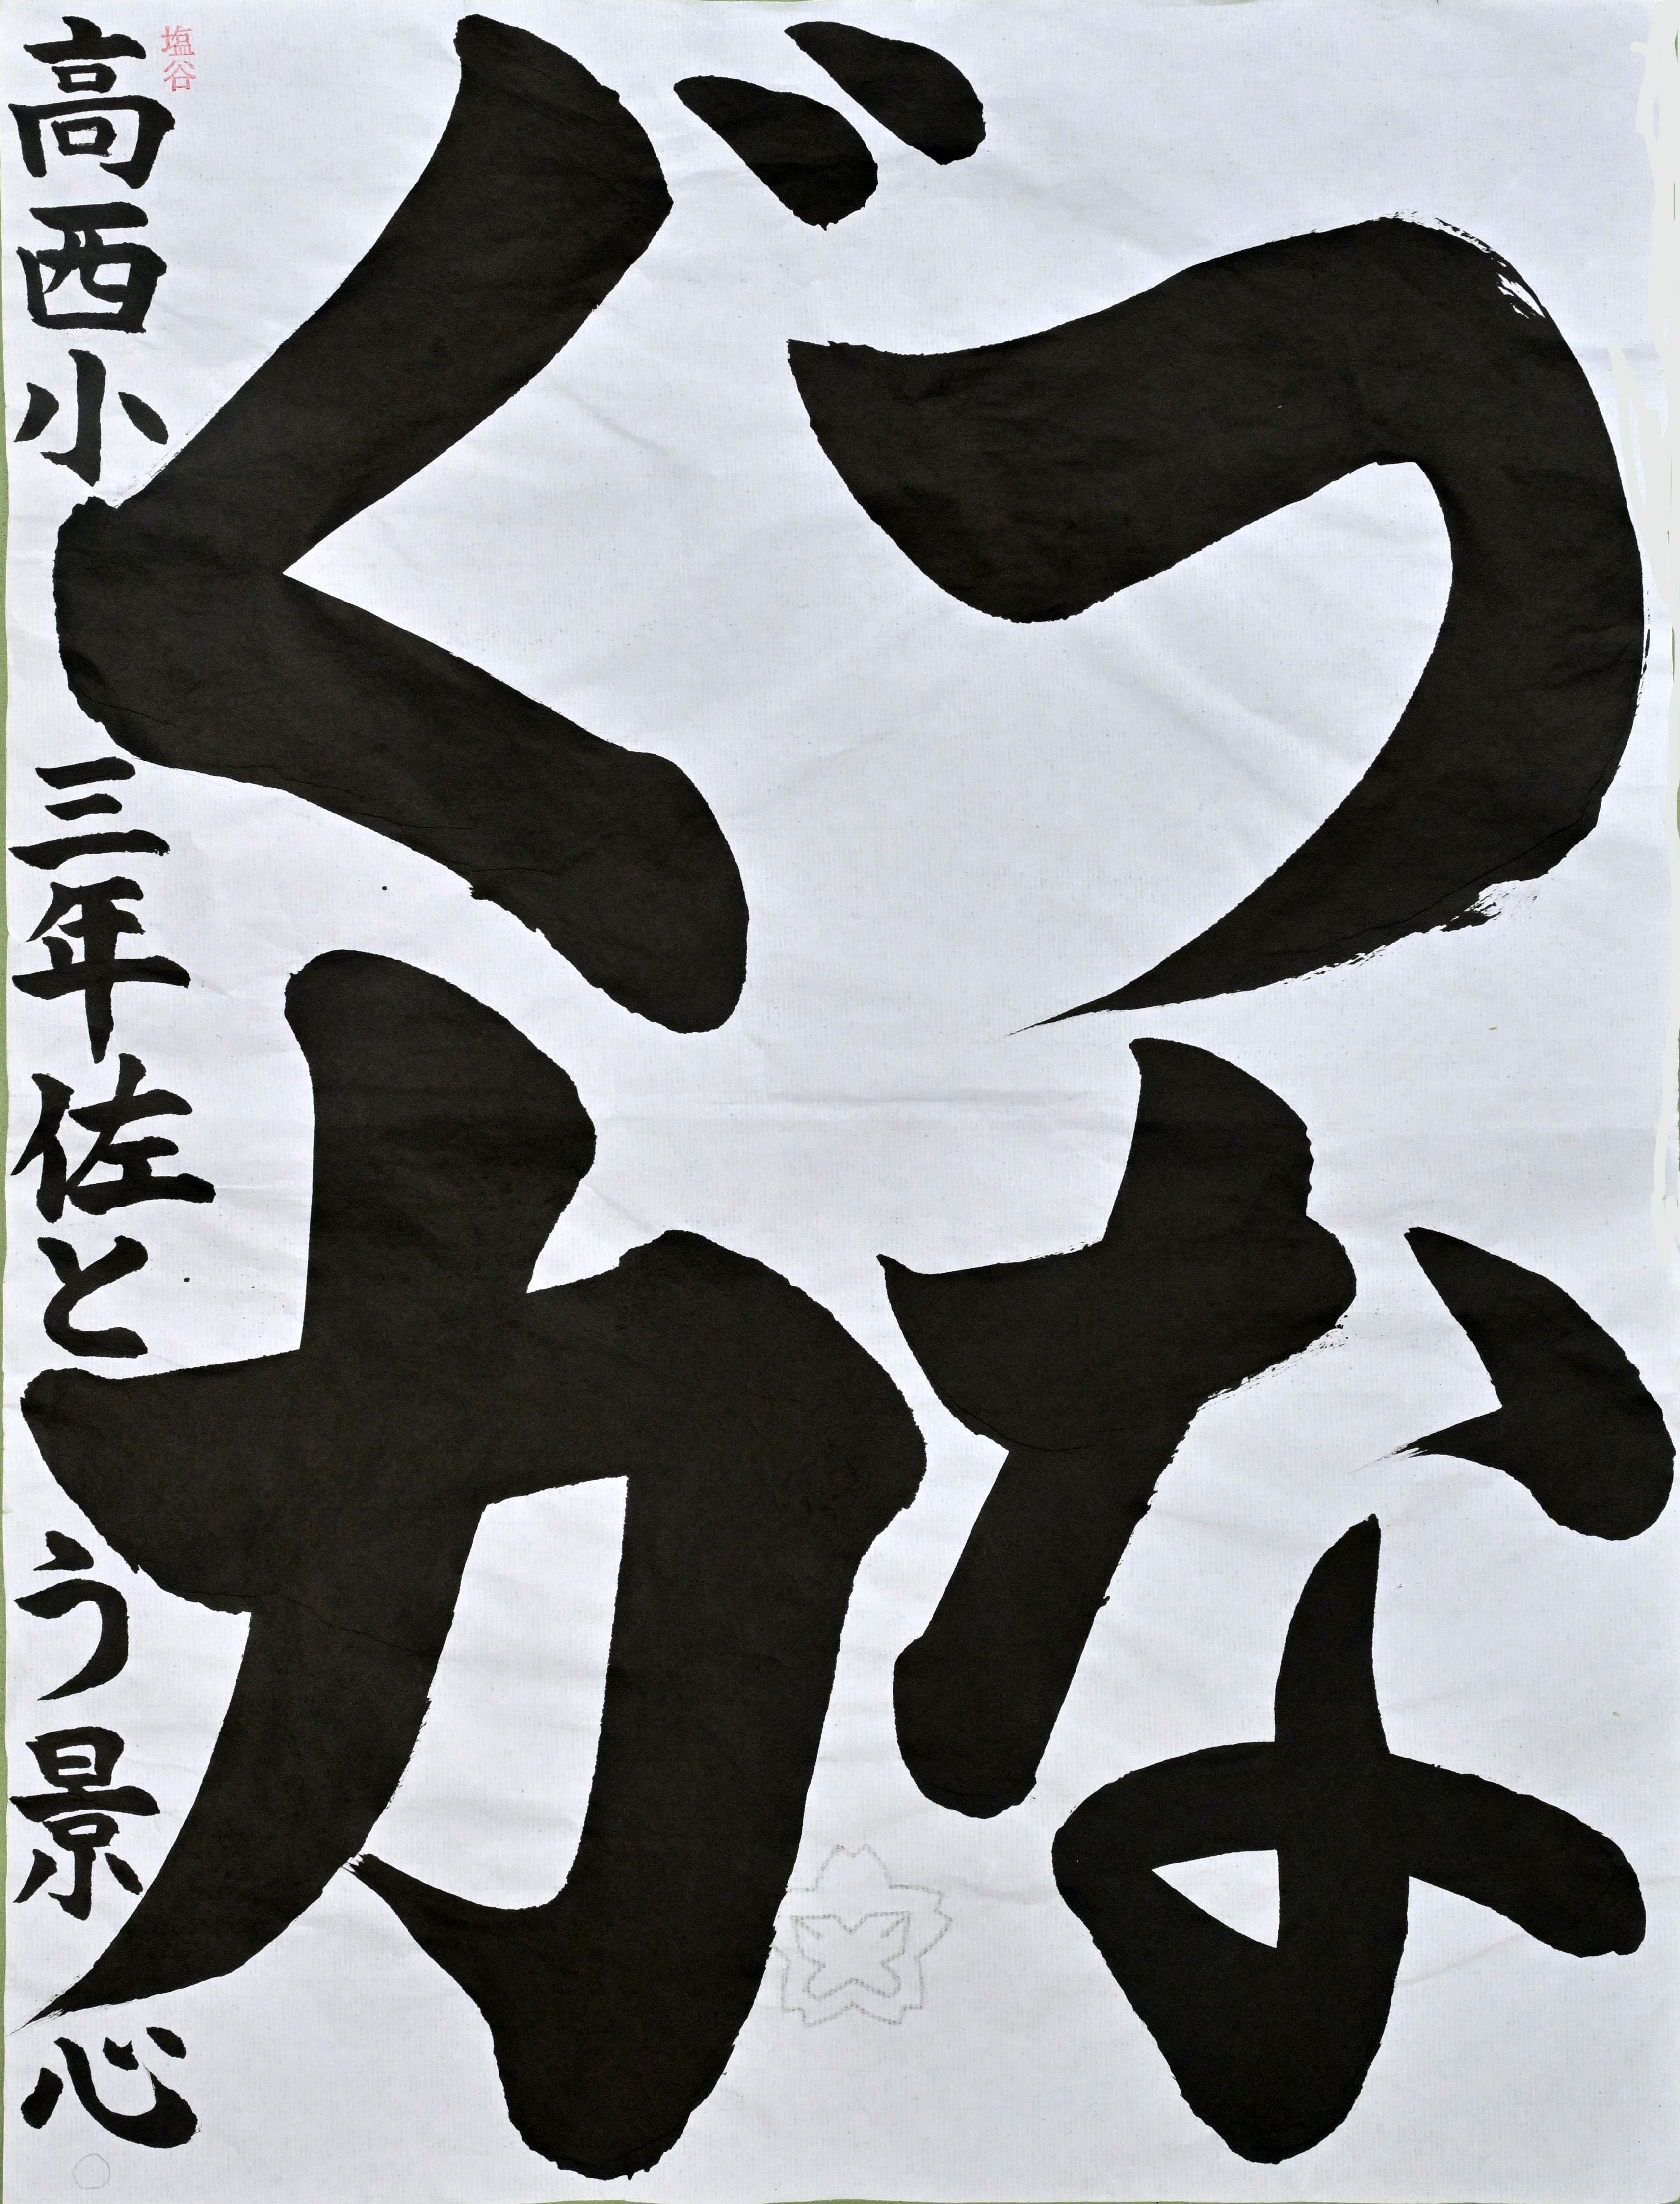 つな
ぐ力
高西小 三年 佐とう景心
塩谷